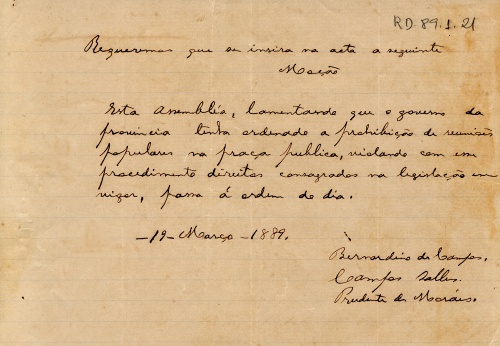 RD. 89.1.21
Requeremos que se insira na acta a seguinte
Moção
Esta Assembléa, lamentando que o governo da
provincia tenha ordenado a prohibição de reuniões
populares na praça publica, violando com esse
procedimento direitos consagrados na legislação em
vigor, passa á ordem do dia.
-19- Março -1889.
Bernardino de Campos.
Campos Salles.
Prudente de Moráes.